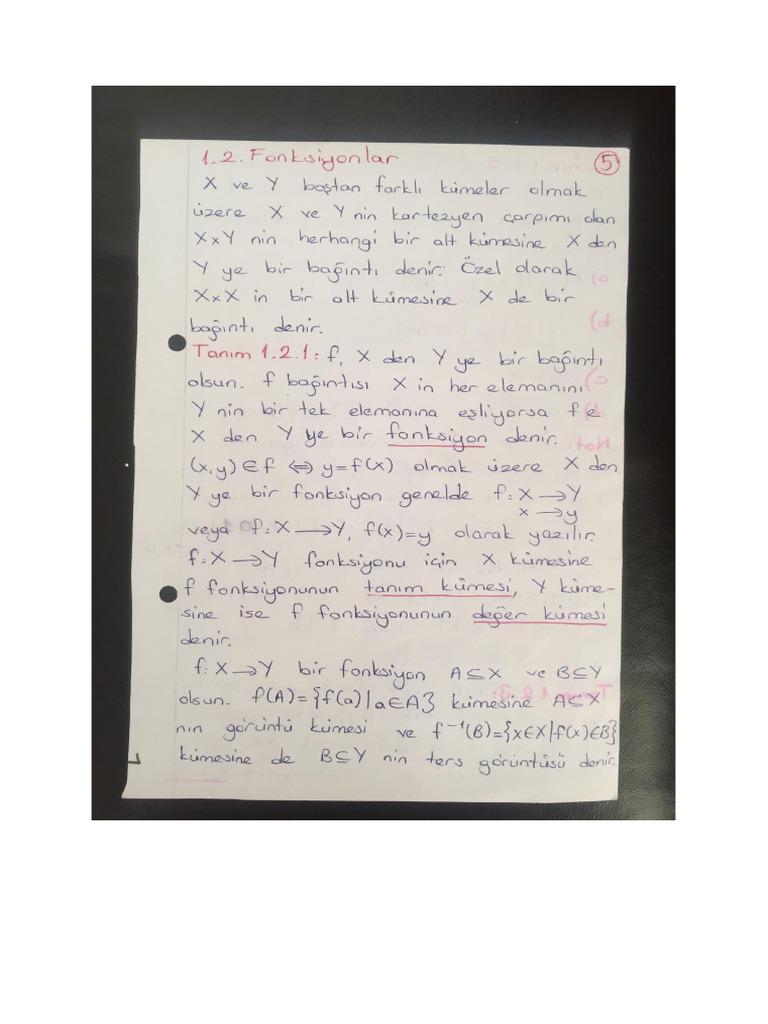 1.2. Fonksiyonlar
5
X ve Y boştan farklı kümeler olmak
üzere X ve Y nin kartezyen çarpımı olan
X×Y nin herhangi bir alt kümesine X den
Y ye bir bağıntı denir. Özel olarak
X×X in bir alt kümesine X de bir
bağıntı denir.
Tanım 1.2.1: f, X den Y ye bir bağıntı
olsun. f bağıntısı X in her elemanını
Y nin bir tek elemanına eşliyorsa f e
X den Y ye bir fonksiyon denir.
(x,y)∈f ⇔ y=f(x) olmak üzere X den
Y ye bir fonksiyon genelde f: X→Y
x→y
veya f: X→Y, f(x)=y olarak yazılır.
f: X→Y fonksiyonu için X kümesine
f fonksiyonunun tanım kümesi, Y küme-
sine ise f fonksiyonunun değer kümesi
denir.
f: X→Y bir fonksiyon A⊆X ve B⊆Y
olsun. f(A)={f(a)|a∈A} kümesine A⊆X
nın görüntü kümesi ve f⁻¹(B)={x∈X|f(x)∈B}
kümesine de B⊆Y nin ters görüntüsü denir.